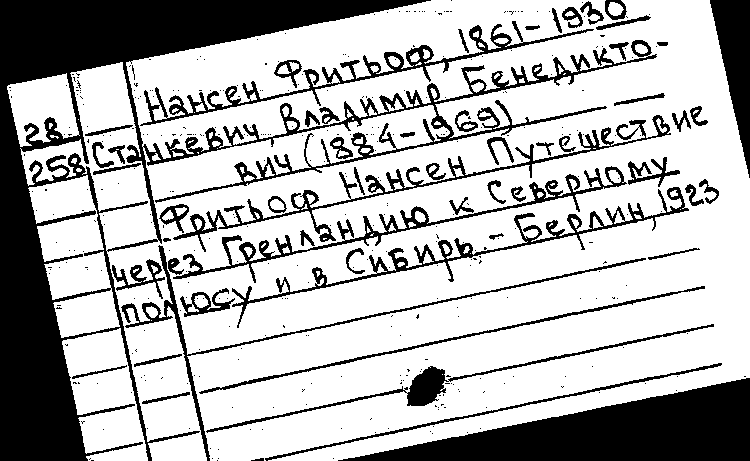 Нансен Фритьоф, 1861-1930
28
258 Станкевич, Владимир Бенедикто-
вич (1884-1969).
Фритьоф Нансен Путешествие
через Гренландию к Северному
полюсу и в Сибирь. - Берлин, 1923